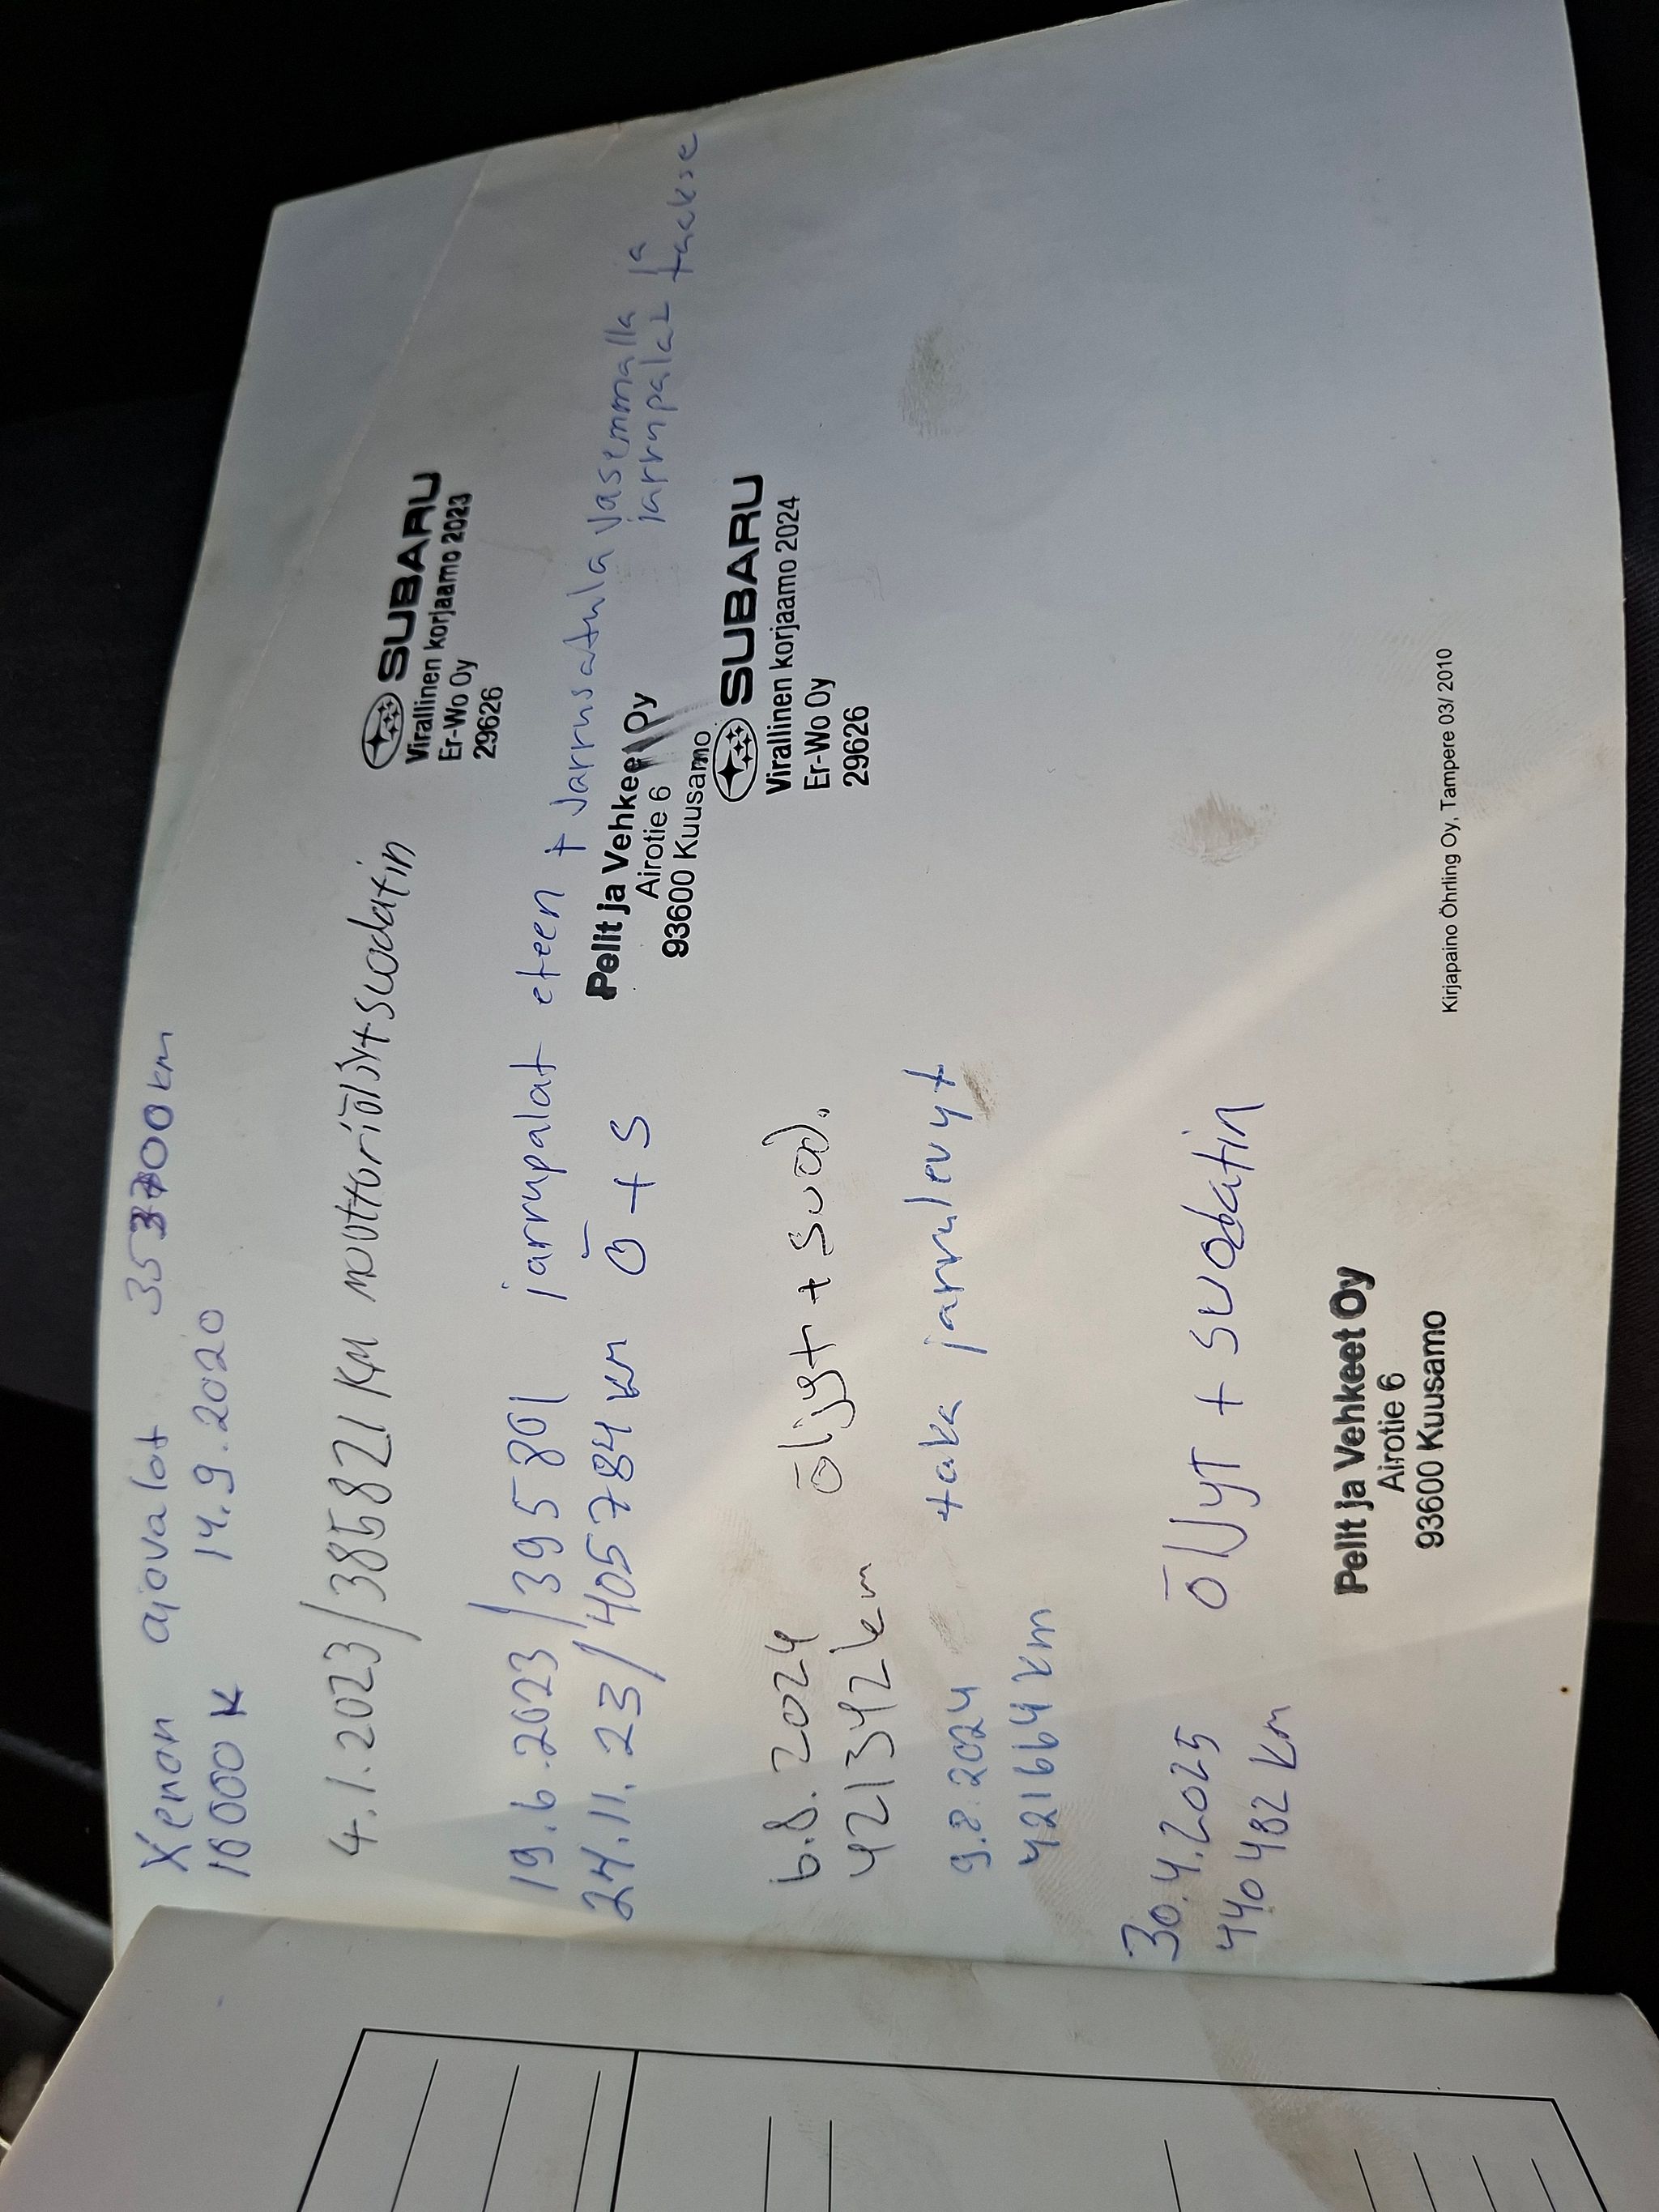 Xenon ajovalot 353700 km
10 000 K 14.9.2020
4.1.2023/385821 KM moottoriöljyt+suodatin
SUBARU
Virallinen korjaamo 2023
Er-Wo Oy
29626
19.6.2023/395801 jarrupalat eteen + Jarrusatula vasemmalla ja
jarrupalat taakse
24.11.23/405784 km ö + s
Pelit ja Vehkeet Oy
Airotie 6
93600 Kuusamo
SUBARU
Virallinen korjaamo 2024
Er-Wo Oy
29626
6.8.2024 öljyt + suod.
421342 km
9.8.2024 taka jarrulevyt
421664 km
30.4.2025 öljyt + suodatin
440482 km
Pelit ja Vehkeet Oy
Airotie 6
93600 Kuusamo
Kirjapaino Öhrling Oy, Tampere 03/2010